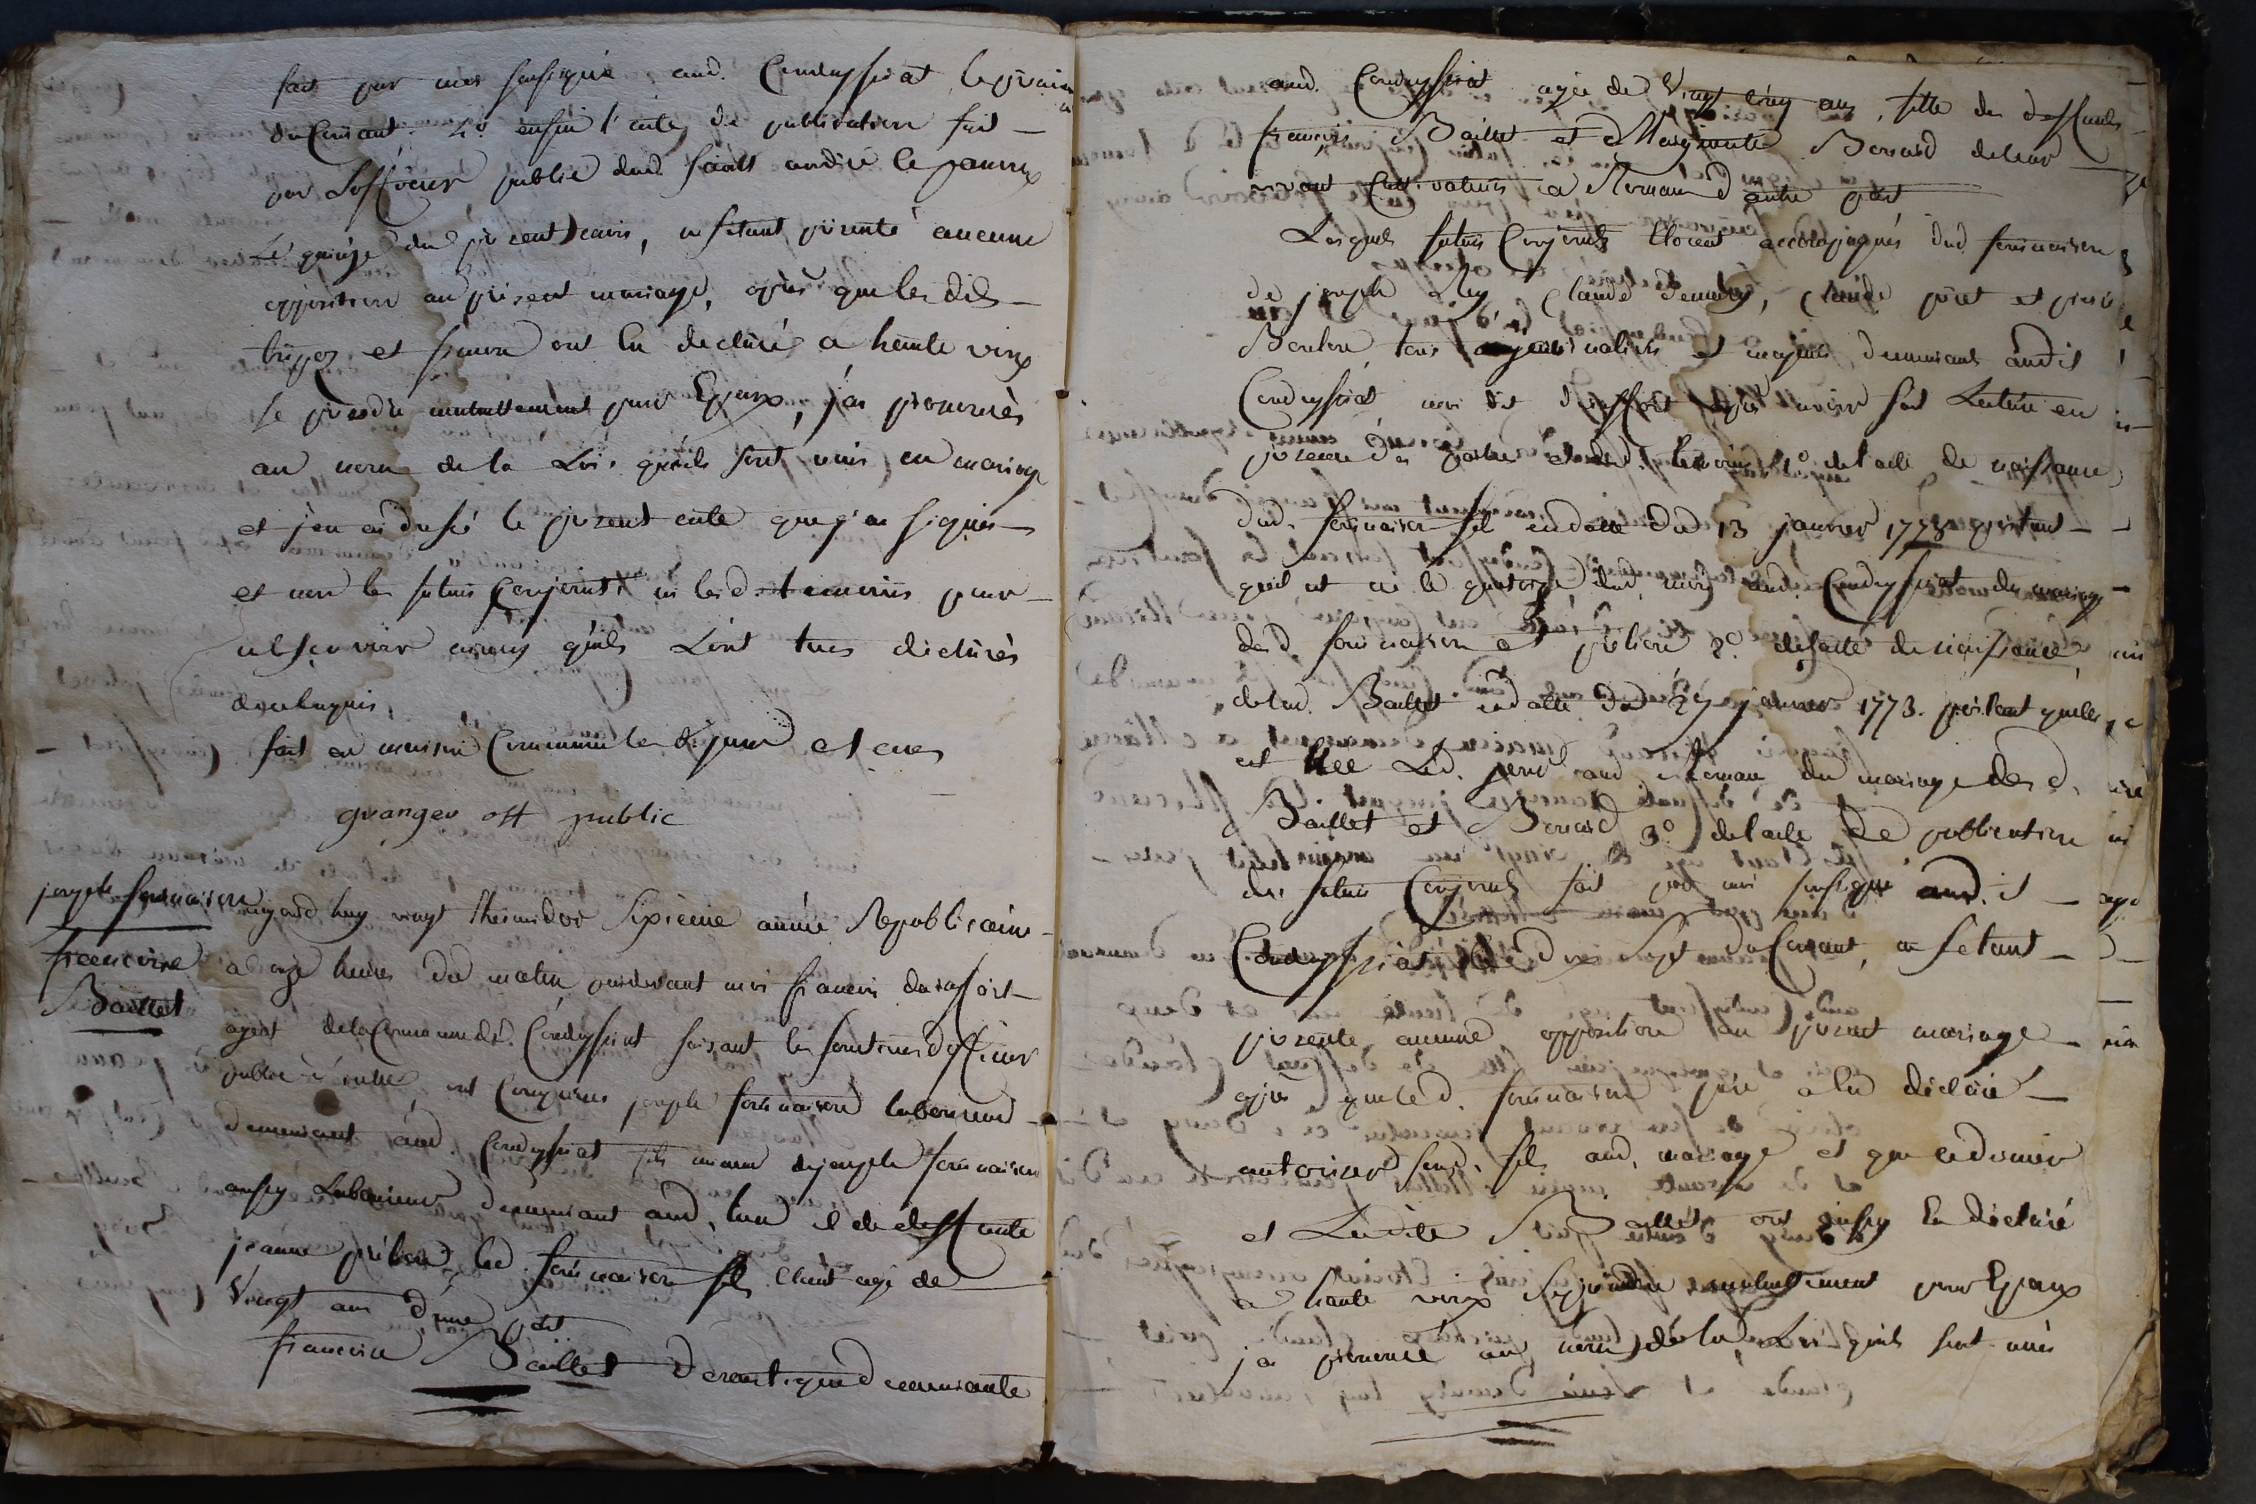 fait par moi soussigné aud. Condeyssiat le
du Courant. 4° enfin l'acte de publication fait
par Lofficier public dud. Saint andré le panoux
Le quinze du présent mois, ne setant présenté aucune
opposition au présent mariage, après que lesdits
et ont eu déclaré a haute voix
se prendre mutuellement pour Epoux, j'ai prononcés
au nom de la Loi qu'ils sont unis en mariage
et j'en ai dressé le présent acte que j'ai signé
et non les futurs Conjoints ni lesd. temoins pour
ne scavoir ainsy qu'ils L'ont tous déclarés
de ce enquis
fait en maison Commune les d. jour et an
granger off public
joseph fornaison
francoise
Baillet
aujourd'huy vingt thermidor sixieme année Republicaine
a onze heures du matin pardevant moi francois duraffort
agent de la Commune de Condeyssiat faisant les fonctions dofficier
public d'icelle, ont Comparus joseph fornaison laboureur
demeurant aud. Condeyssiat fils mineur de joseph fornaison
aussy Laboureur demeurant aud. lieu et de deffunte
jeanne led. fornaison fils étant agé de
Vingt ans d'une part
francoise Baillet domestique demeurante
aud. Condeyssiat agée de Vingt cinq ans, fille des deffunts
francois Baillet et Marguerite Bernard de leur
vivant Cultivateurs a Romans d'autre part
Lesquels futurs Conjoints Etoient accompagnés dud. fornaison
de joseph Rey, Claude, Claude poret et pierre
Bonlon tous et majeurs demeurants audit
Condeyssiat, moi dit duraffort après avoir fait Lecture en
présence des parties et desd. temoins 1° de l'acte de naissance
dud. fornaison fils en datte du 13 janvier 1773 portant
qu'il est né le quatorze dud. mois aud. Condeyssiat du mariage
desd. fornaison et 2° de l'acte de naissance
de lad. Baillet en datte du 27 janvier 1773. portant qu'elle
est Née Led. jour aud. Romans du mariage des d.
Baillet et Bernard 3° de l'acte de publication
des futurs Conjoints fait par moi soussigné audit
Condeyssiat le dix sept du Courant, ne setant
présenté aucune opposition au présent mariage
après que led. fornaison père a eu déclaré
autoriser sond. fils aud. mariage et que ce dernier
et Ladite Baillet ont aussy Eu déclaré
a haute voix se prendre mutuellement pour Epoux
j'ai prononcé au nom de la Loi qu'ils sont unis